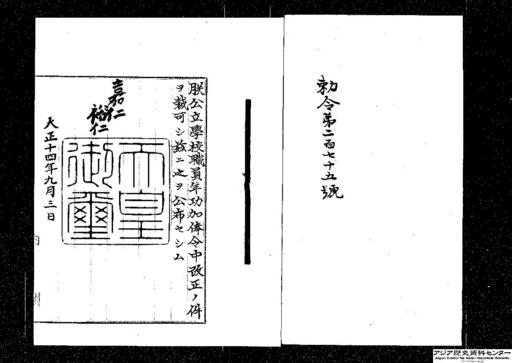 勅令第二百七十五號
朕公立學校職員年功加俸令中改正ノ件
ヲ裁可シ茲ニ之ヲ公布セシム
嘉仁
裕仁
天皇
御璽
大正十四年九月三日
アジア歴史資料センター
Japan Center for Asian Historical Records